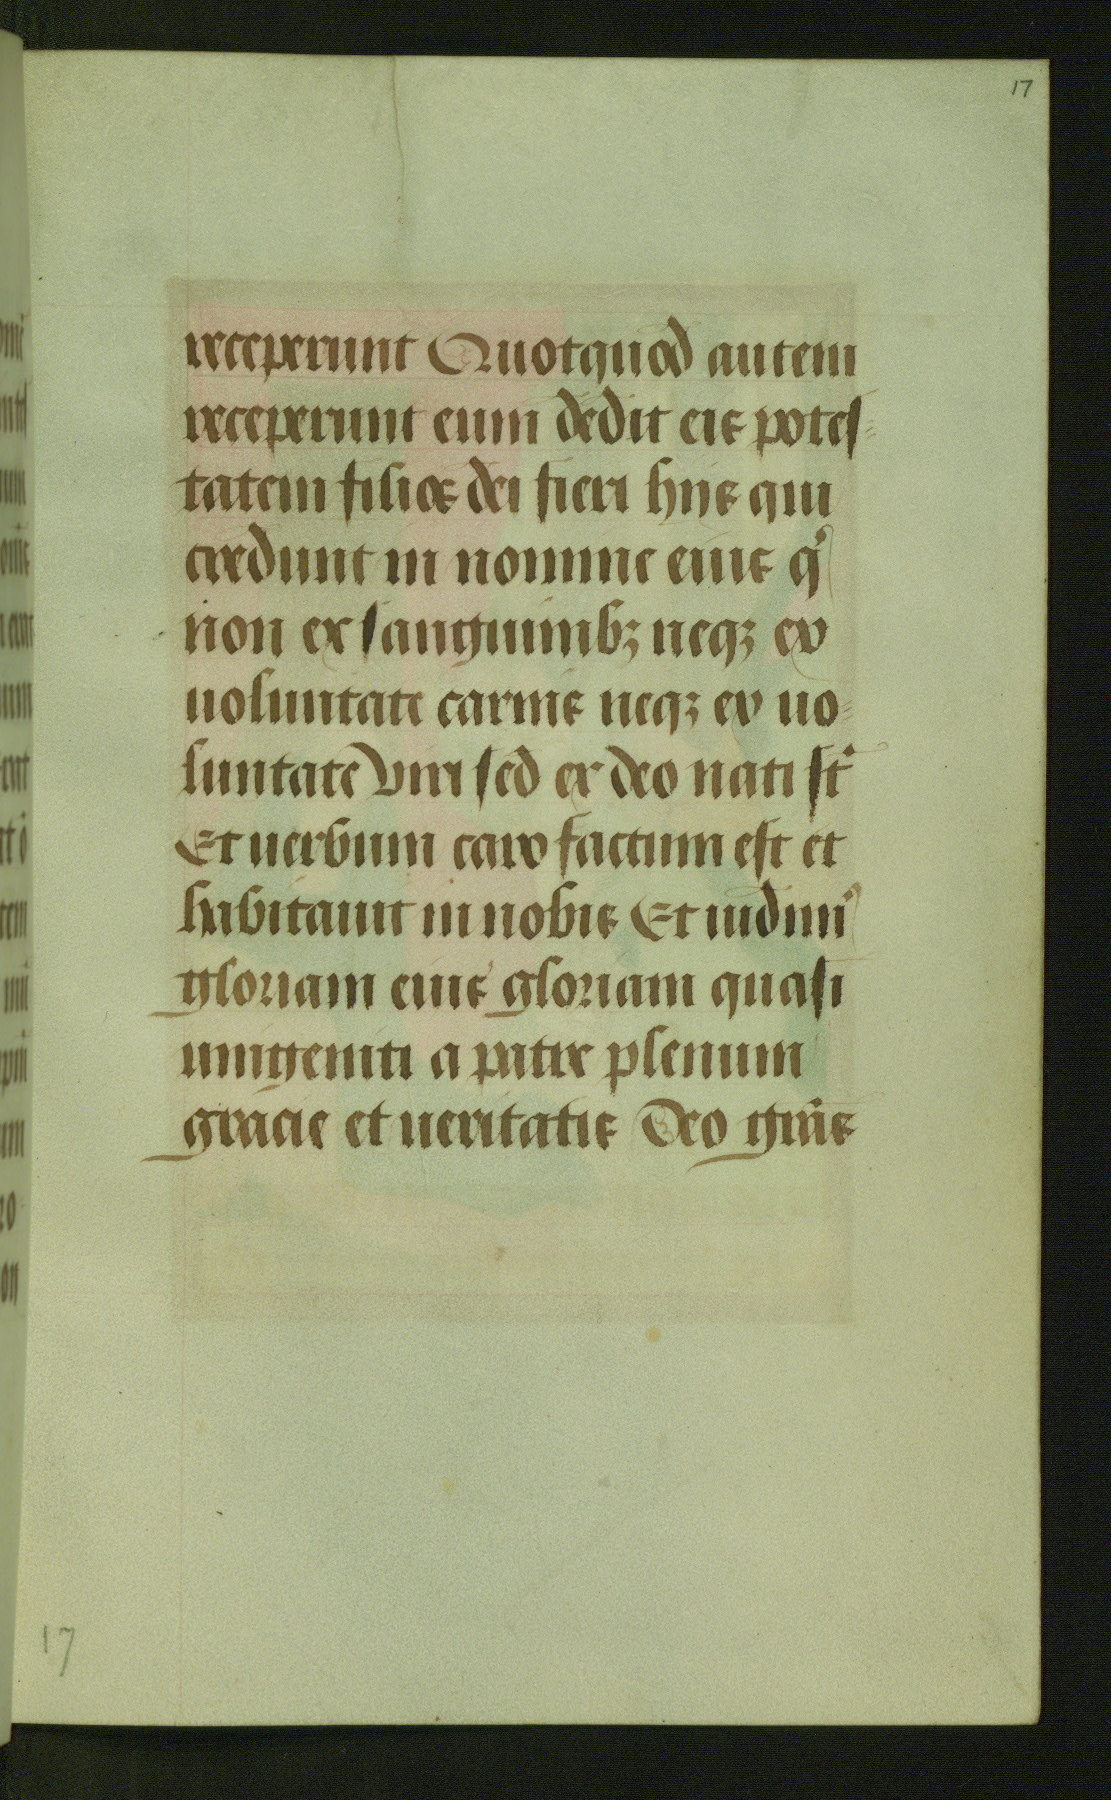 17
receperunt Quotquod autem
receperunt eum dedit eis potes=
tatem filios dei fieri hijs qui
credunt in nomine eius q̉
non ex sanguinibꝫ neqꝫ ex
uoluntate carnis neqꝫ ex uo=
luntate viri sed ex deo nati st̉
Et uerbum caro factum est et
habitauit in nobis Et uidim̉
gloriam eius gloriam quasi
unigeniti a patre plenum
gracie et ueritatis Deo gr̄as
17